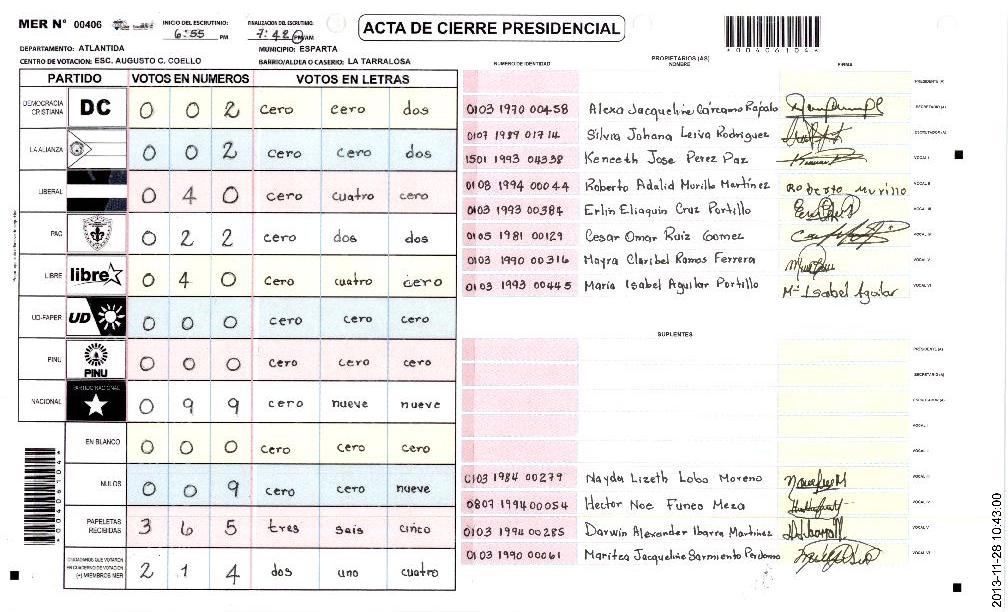 MER N° 00406
INICIO DEL ESCRUTINIO: 6:55 PM
FINALIZACION DEL ESCRUTINIO: 7:42 PM/AM
ACTA DE CIERRE PRESIDENCIAL
*00406104*
DEPARTAMENTO: ATLANTIDA
MUNICIPIO: ESPARTA
CENTRO DE VOTACION: ESC. AUGUSTO C. COELLO
BARRIO/ALDEA O CASERIO: LA TARRALOSA
PARTIDO VOTOS EN NUMEROS VOTOS EN LETRAS
DEMOCRACIA CRISTIANA DC 0 0 2 cero cero dos
LA ALIANZA 0 0 2 cero cero dos
LIBERAL 0 4 0 cero cuatro cero
PAC 0 2 2 cero dos dos
LIBRE libre 0 4 0 cero cuatro cero
UD-FAPER UD 0 0 0 cero cero cero
PINU PINU 0 0 0 cero cero cero
NACIONAL PARTIDO NACIONAL 0 9 9 cero nueve nueve
EN BLANCO 0 0 0 cero cero cero
NULOS 0 0 9 cero cero nueve
PAPELETAS RECIBIDAS 3 6 5 tres seis cinco
CIUDADANOS QUE VOTARON EN CUADERNO DE VOTACION (+) MIEMBROS MER 2 1 4 dos uno cuatro
*00406104*
NUMERO DE IDENTIDAD PROPIETARIOS (AS) NOMBRE FIRMA
PRESIDENTE (A)
0103 1970 00458 Alexa Jacqueline Cárcamo Rápalo SECRETARIO (A)
0107 1989 01714 Silvia Johana Leiva Rodriguez ESCRUTADOR (A)
1501 1993 04338 Kenceth Jose Perez Paz VOCAL I
0108 1994 00044 Roberto Adalid Murillo Martínez Roberto Murillo VOCAL II
0103 1993 00384 Erlin Eliaquin Cruz Portillo VOCAL III
0105 1981 00129 Cesar Omar Ruiz Gomez VOCAL IV
0103 1990 00316 Mayra Claribel Ramos Ferrera VOCAL V
0103 1993 00445 Maria Isabel Aguilar Portillo Mª Isabel Aguilar VOCAL VI
SUPLENTES
PRESIDENTE (A)
SECRETARIO (A)
ESCRUTADOR (A)
VOCAL I
VOCAL II
0103 1984 00279 Nayda Lizeth Lobo Moreno VOCAL III
0807 1994 00054 Hector Noe Funco Meza VOCAL IV
0103 1994 00285 Darwin Alexander Ibarra Martinez VOCAL V
0103 1990 00061 Maritza Jacqueline Sarmiento Perdomo VOCAL VI
2013-11-28 10:43:00